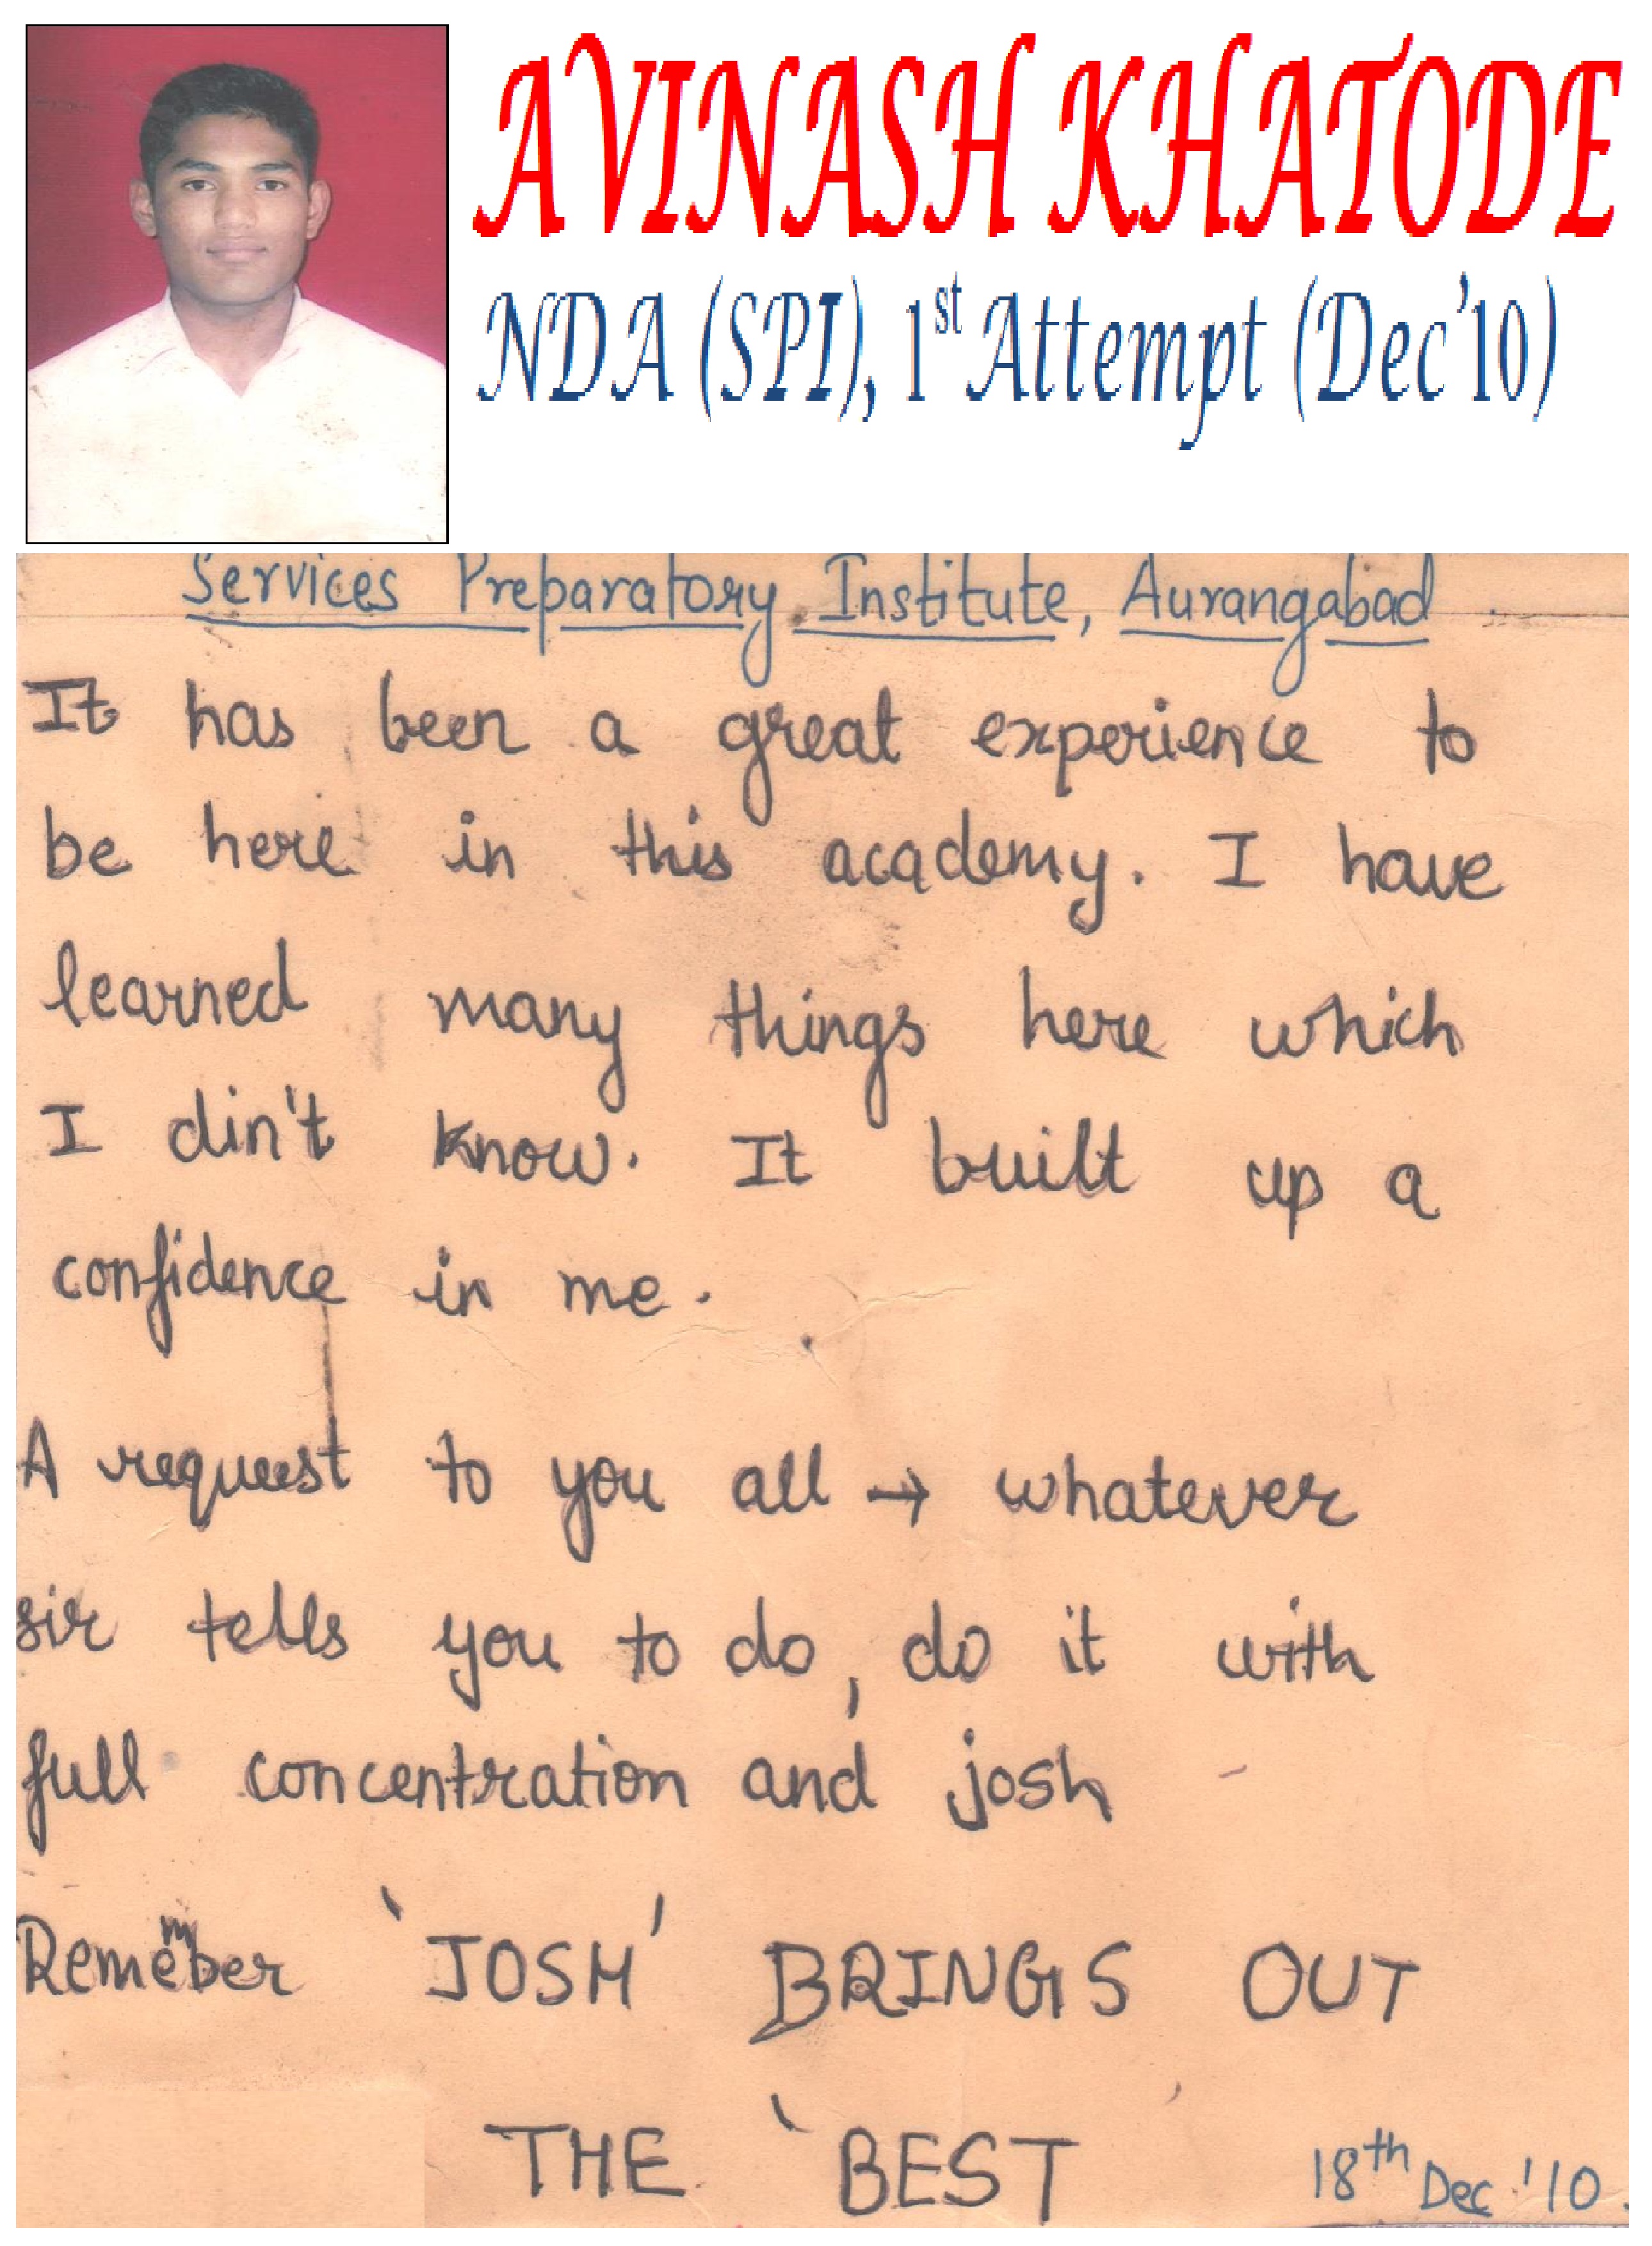 AVINASH KHATODE
NDA (SPI), 1st Attempt (Dec'10)
Services Preparatory Institute, Aurangabad
It has been a great experience to
be here in this academy. I have
learned many things here which
I din't know. It built up a
confidence in me.
A request to you all → whatever
sir tells you to do, do it with
full concentration and josh
Remember 'JOSH' BRINGS OUT
THE 'BEST'
18th Dec '10.